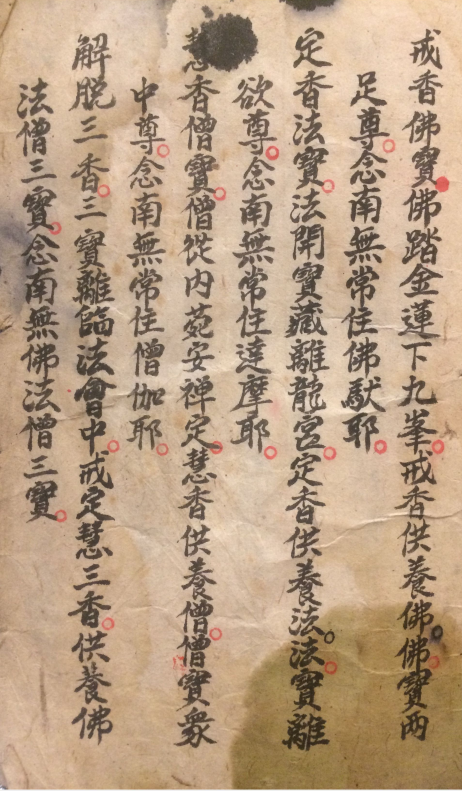 戒香佛寶佛踏金蓮下九峯戒香供養佛佛寶兩
足尊念南無常住佛䭾耶
定香法寶法開寶藏離龍宮定香供養法法寶離
欲尊念南無常住達摩耶
慧香僧寶僧從內苑安禪定慧香供養僧僧寶眾
中尊念南無常住僧伽耶
解脱三香三寶離臨法會中戒定慧三香供養佛
法僧三寶念南無佛法僧三寶